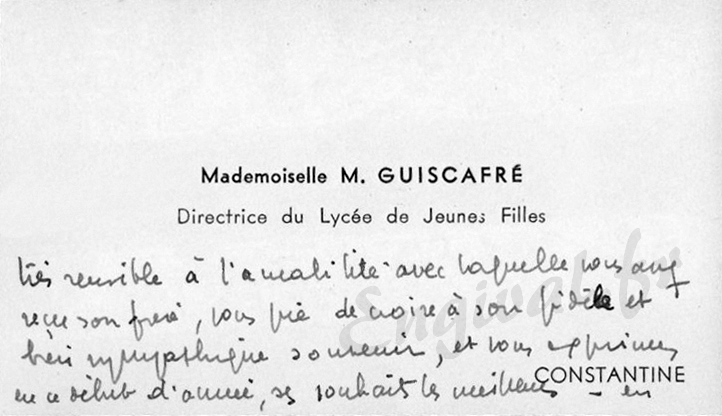 Mademoiselle M. GUISCAFRÉ
Directrice du Lycée de Jeunes Filles
très sensible à l'amabilité avec laquelle vous avez
reçu son frère, vous prie de croire à son fidèle et
très sympathique souvenir, et vous exprime,
en ce début d'année, ses souhaits les meilleurs -
CONSTANTINE
Engival.fr